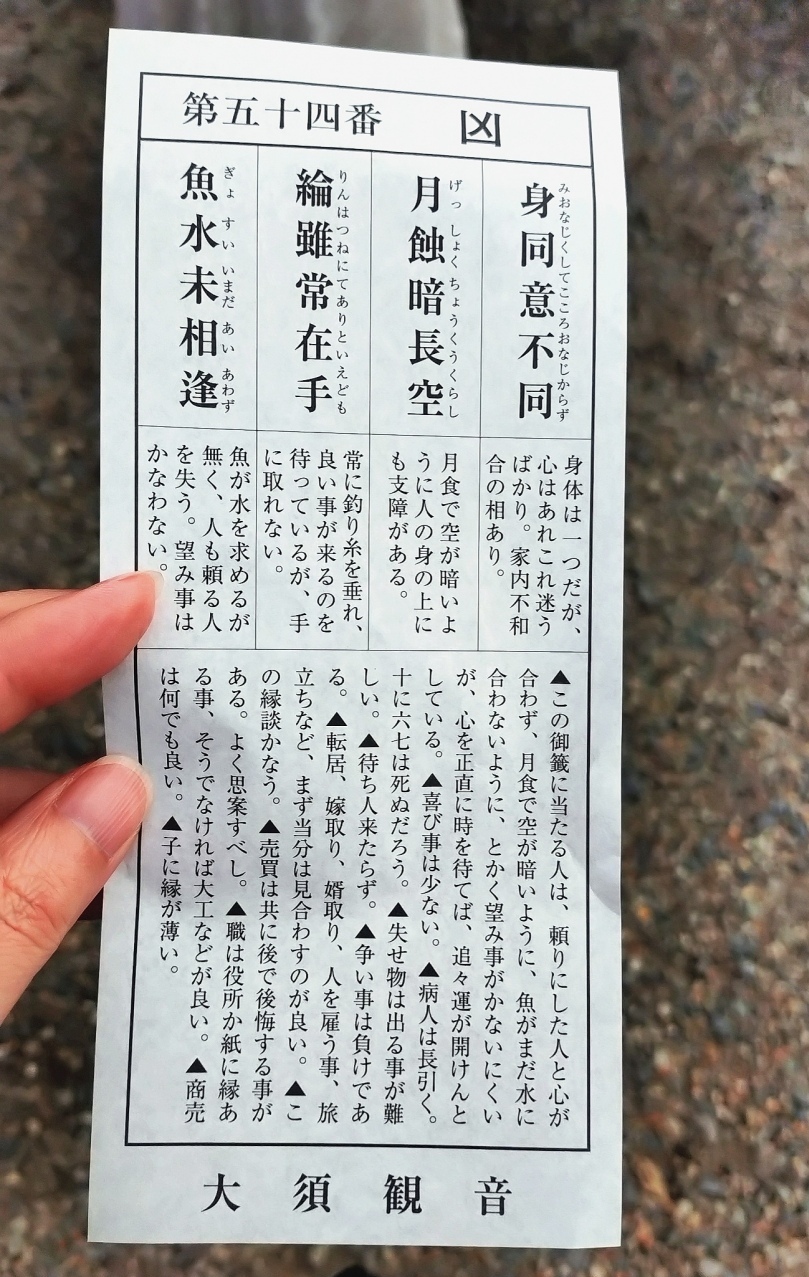 第五十四番 凶
身同意不同
みおなじくしてこころおなじからず
月蝕暗長空
げっしょくちょうくうくらし
綸雖常在手
りんはつねにてありといえども
魚水未相逢
ぎょすいいまだあいあわず
身体は一つだが、
心はあれこれ迷う
ばかり。家内不和
合の相あり。
月食で空が暗いよ
うに人の身の上に
も支障がある。
常に釣り糸を垂れ、
良い事が来るのを
待っているが、手
に取れない。
魚が水を求めるが
無く、人も頼る人
を失う。望み事は
かなわない。
▲この御籤に当たる人は、頼りにした人と心が
合わず、月食で空が暗いように、魚がまだ水に
合わないように、とかく望み事がかないにくい
が、心を正直に時を待てば、追々運が開けんと
している。▲喜び事は少ない。▲病人は長引く。
十に六七は死ぬだろう。▲失せ物は出る事が難
しい。▲待ち人来たらず。▲争い事は負けであ
る。▲転居、嫁取り、婿取り、人を雇う事、旅
立ちなど、まず当分は見合わすのが良い。▲こ
の縁談かなう。▲売買は共に後で後悔する事が
ある。よく思案すべし。▲職は役所か紙に縁あ
る事、そうでなければ大工などが良い。▲商売
は何でも良い。▲子に縁が薄い。
大須観音